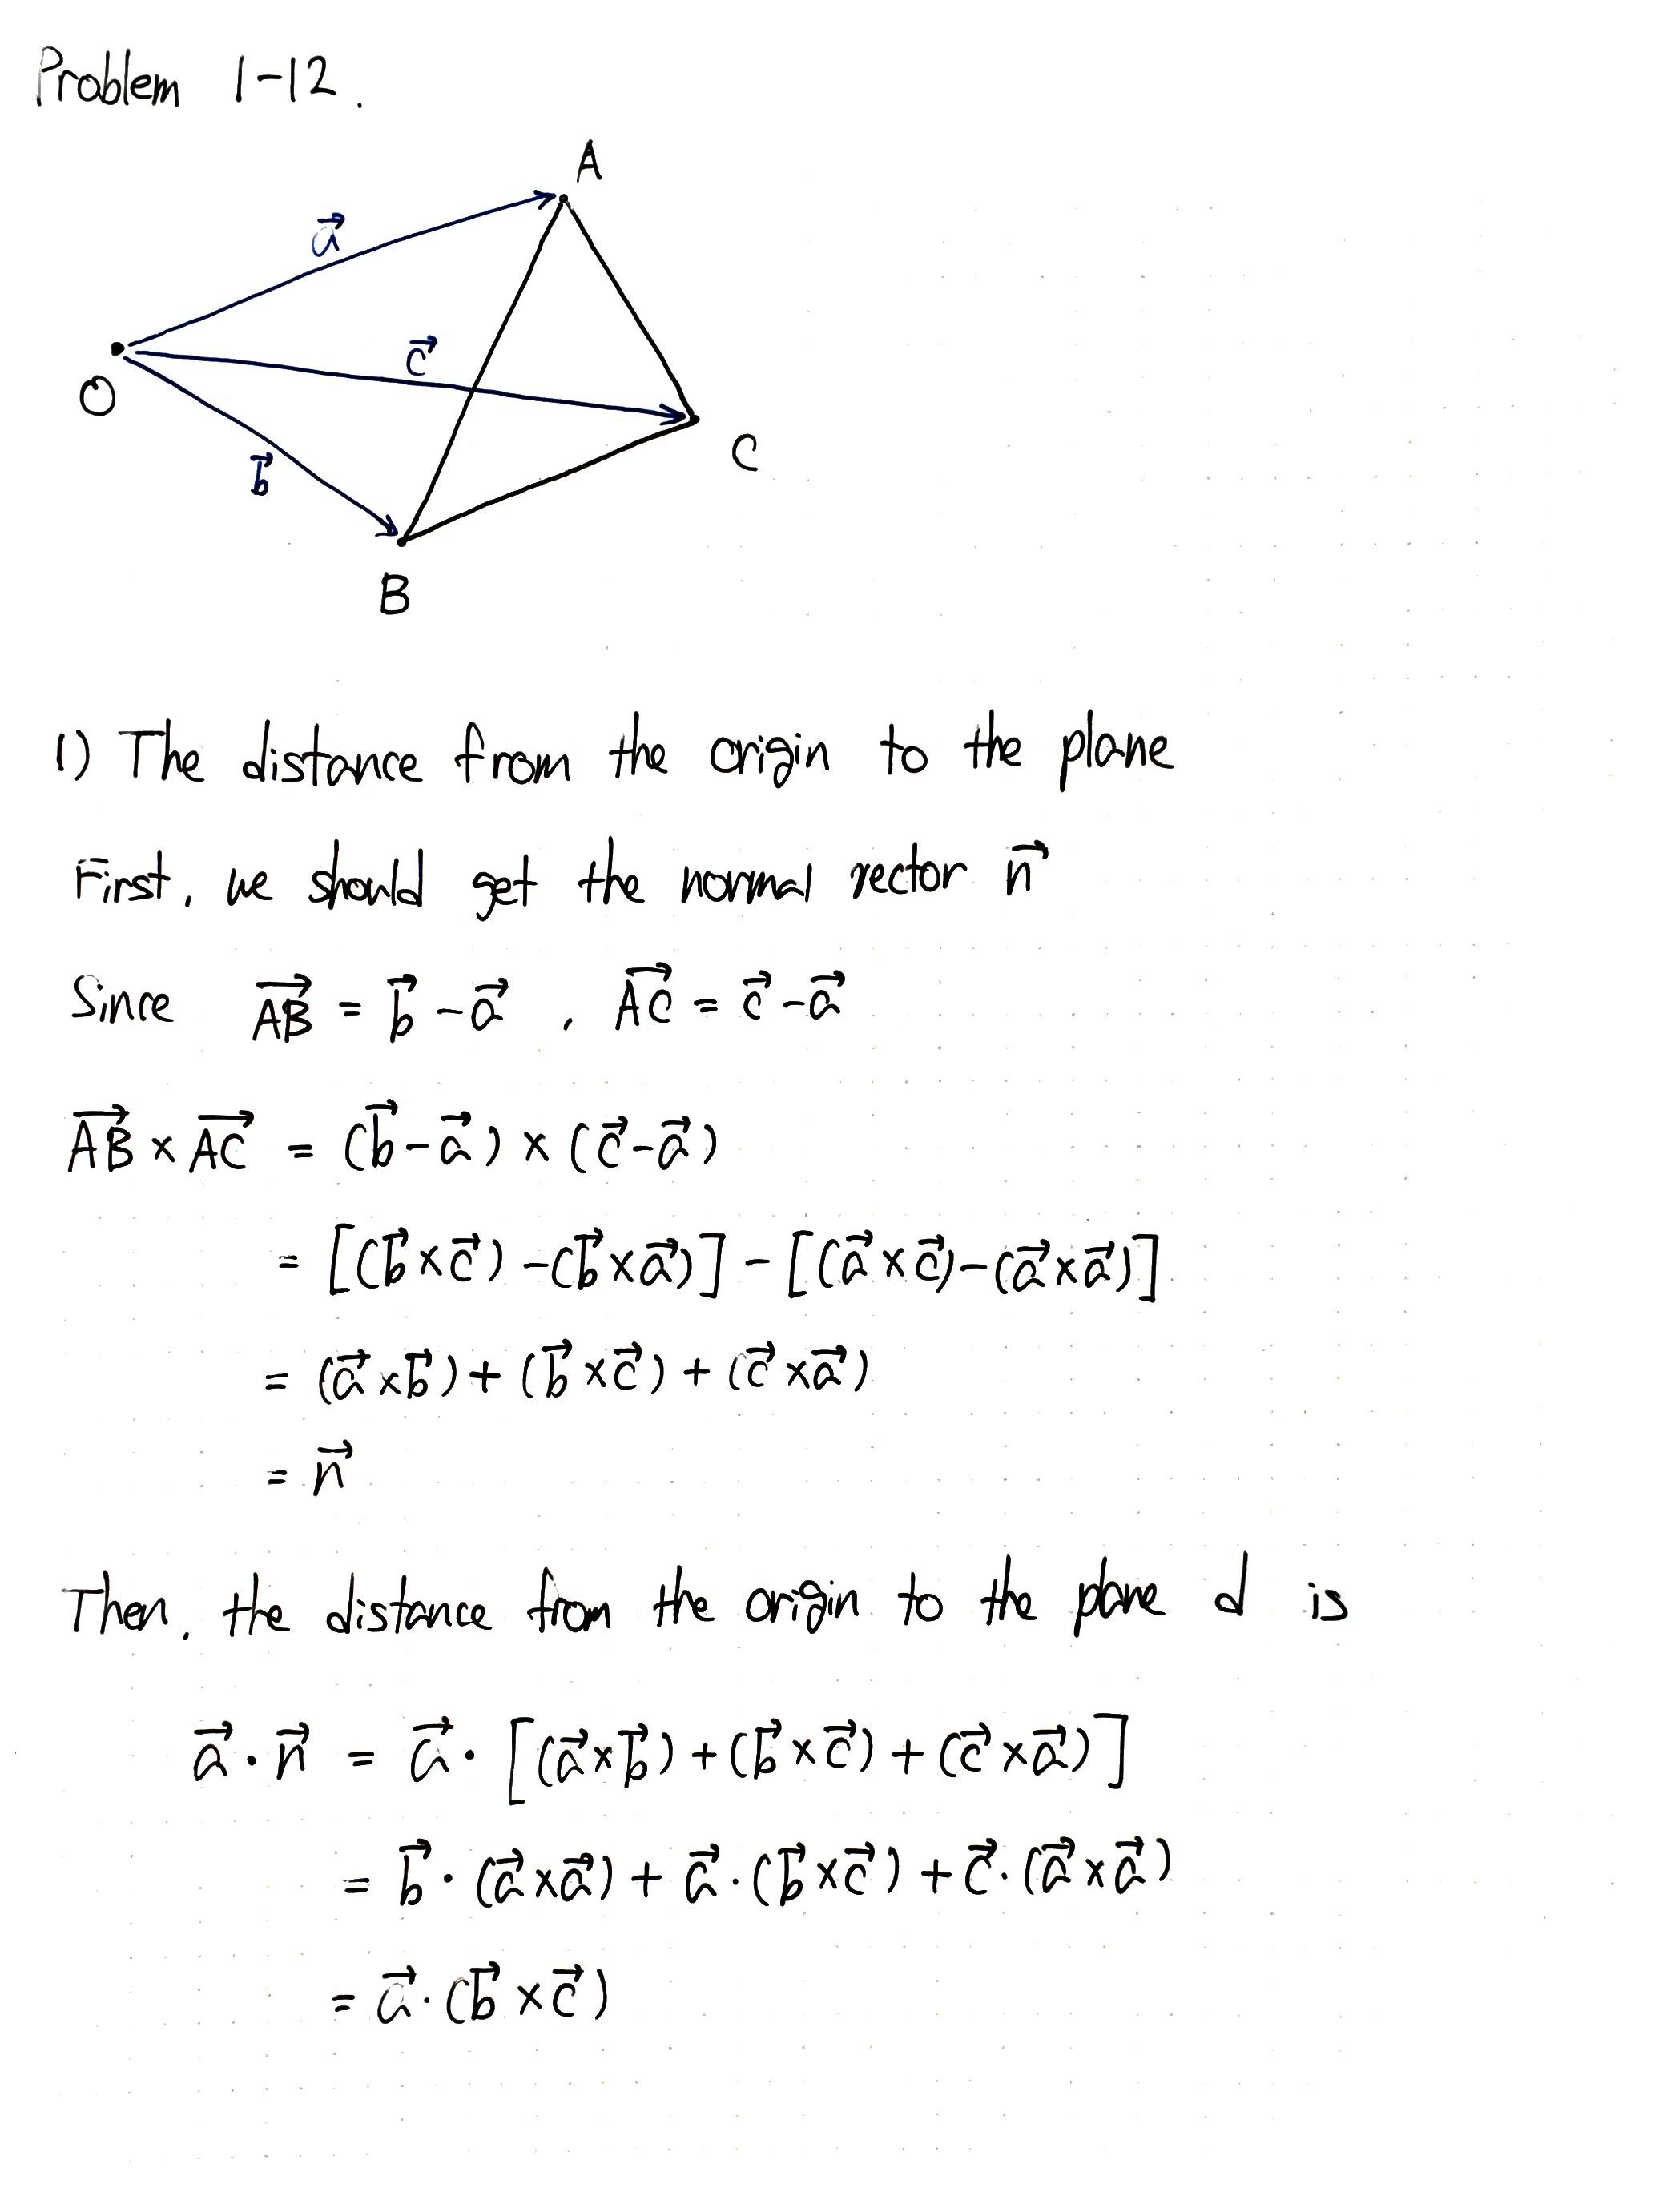 Problem 1-12.
A
a⃗
c⃗
O
C
b⃗
B
1) The distance from the origin to the plane
First, we should get the normal vector n⃗
Since AB⃗ = b⃗ - a⃗ , AC⃗ = c⃗ - a⃗
AB⃗ × AC⃗ = (b⃗ - a⃗) × (c⃗ - a⃗)
= [(b⃗ × c⃗) - (b⃗ × a⃗)] - [(a⃗ × c⃗) - (a⃗ × a⃗)]
= (a⃗ × b⃗) + (b⃗ × c⃗) + (c⃗ × a⃗)
= n⃗
Then, the distance from the origin to the plane d is
a⃗ · n⃗ = a⃗ · [(a⃗ × b⃗) + (b⃗ × c⃗) + (c⃗ × a⃗)]
= b⃗ · (a⃗ × a⃗) + a⃗ · (b⃗ × c⃗) + c⃗ · (a⃗ × a⃗)
= a⃗ · (b⃗ × c⃗)